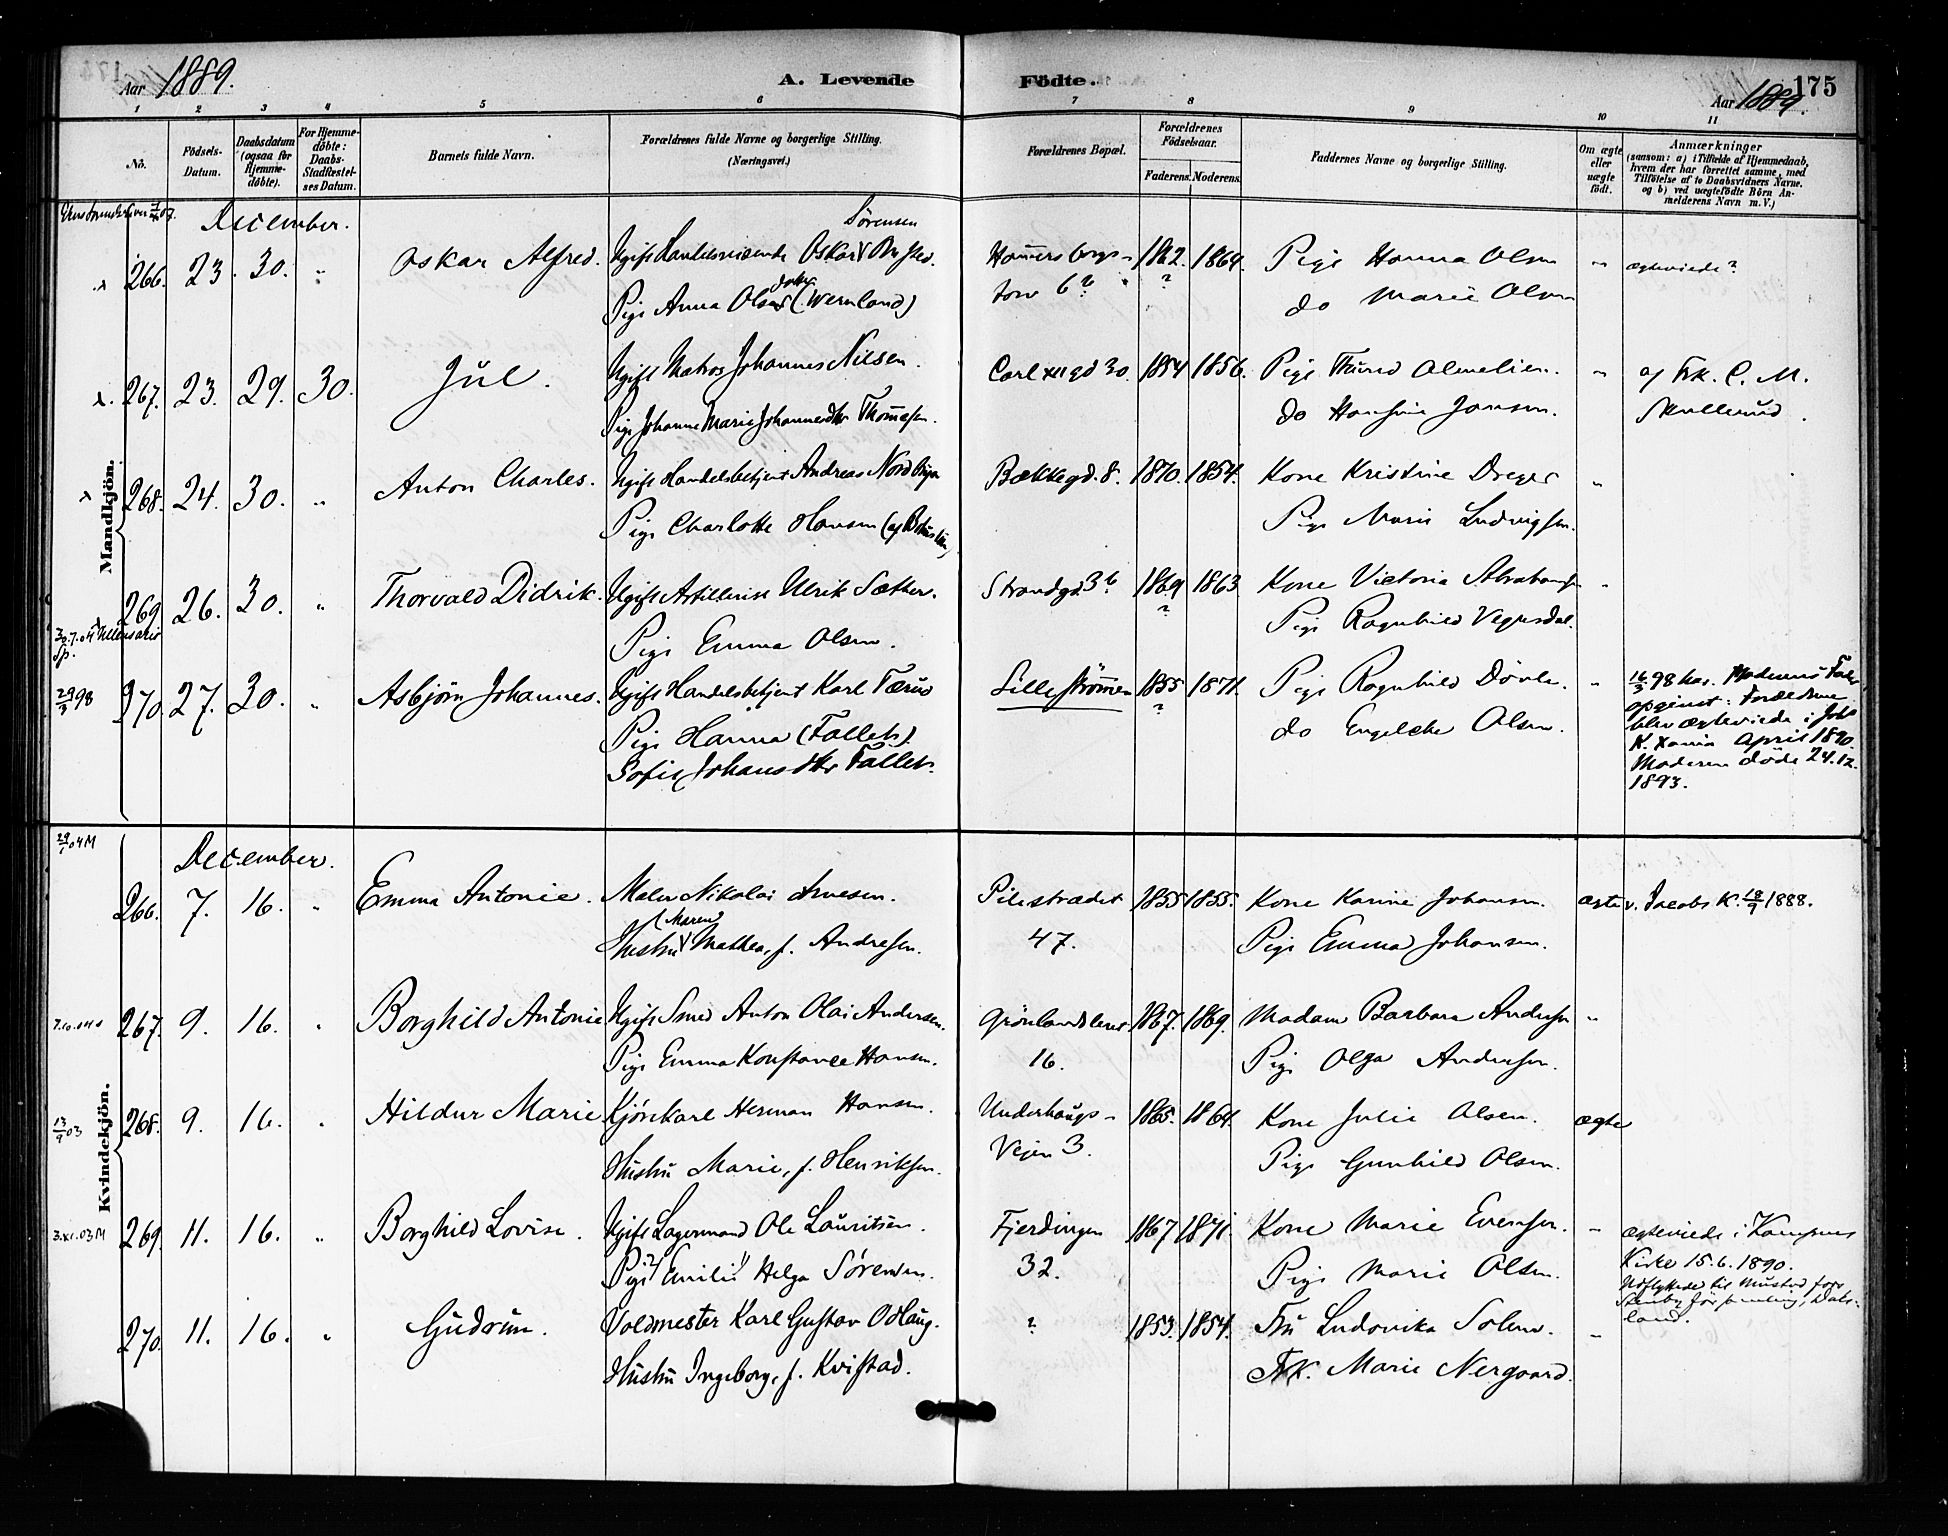 Aar 1889.
A. Levende
Födte.
175
Aar 1889.
1 2 3 4 5 6 7 8 9 10 11
No.
Födsels-Datum.
Daabsdatum (ogsaa for Hjemme-döbte).
For Hjemme-döbte: Daabs-Stadfestel-ses Datum.
Barnets fulde Navn.
Forældrenes fulde Navne og borgerlige Stilling.
(Næringsvei.)
Forældrenes Bopæl.
Forældrenes Födselsaar.
Faderens. Moderens.
Faddernes Navne og borgerlige Stilling.
Om ægte eller uægte födt.
Anmærkninger
(saasom: a) i Tilfælde af Hjemmedaab,
hvem der har forrettet samme, med
Tilföielse af to Daabsvidners Navne.
og b) ved uægtefödte Börn An-
melderens Navn m. V.)
December.
Sörensen
266. 23. 30. " Oskar Alfred. Ugift Handelsreisende Oskar
Pige Anna Olsdatter (Wermland)
Hammersborgs-
torv 6? 1862. ? 1864. Pige Hanna Olsen " ægteviede?
do Marie Olsen
267. 23. 29. 30. Jul. Ugift Matros Johannes Nilsen.
Pige Johanne Marie Thomasen.
Carl XII gd 30. 1854 1856. Pige
do Jansen.
af Frk. C. M.
Mandkjön.
268. 24. 30. " Anton Charles. Ugift Handelsbetjent Andreas
Pige Charlotte Hansen
Bækkegd. 8. 1870. 1854. Kone Kristine Dreyer "
Pige Marie Ludvigsen.
269. 26. 30. " Thorvald Didrik. Ugift Artillerist Ulrik Sæther.
Pige Emma Olsen.
Strandgd. 1869 ? 1863 Kone Victoria "
Pige Ragnhild
29/3 98 270. 27. 30. " Asbjörn Johannes. Ugift Handelsbetjent Karl
Pige Hanna (Falleth)
Sofie Falleth.
Lilleströmmen 1855 ? 1871. Pige Ragnhild "
do Olsen.
16/3 98 har Moderens
opgivet: Forældrene
blev ægteviede i
K. Xania April 1890.
Moderen döde 24.12.
1893.
29/1 04 M
December.
266. 7. 16. " Emma Antonie. Maler Nikolai Arnesen.
(Maren)
Hustru Mathea, f. Andresen.
Pilestrædet
47. 1855 1855. Kone Karine Johansen. ægte v. Jacobs K. 18/9 1888.
Pige Emma Johansen.
267. 9. 16. " Borghild Antonie Ugift Smed Anton Olai Andersen.
Pige Emma Konstance Hansen.
Grönlandsleret
16. 1867. 1869. Madam Barbara Andersen "
Pige Olga Andersen.
Kvindekjön.
13/9 03 268. 9. 16. " Hildur Marie Kjörekarl Herman Hansen.
Hustru Marie, f. Henriksen.
Underhaugs-
Veien 3. 1865. 1864. Kone Julie Olsen. ægte
Pige Gunhild Olsen.
3.XI.03 M 269. 11. 16. " Borghild Lovise. Ugift Lagermand Ole Lauritsen.
Pige Emilie Helga Sörensen.
Fjerdingen
32. 1867 1871. Kone Marie Evensen. " ægteviede i Kampens
Kirke 15.6.1890.
Pige Marie Olsen.
270. 11. 16. " Gudrun. Voldmester Karl Gustav Odlaug.
Hustru Ingeborg, f. Kvistad.
? 1853. 1854. Fru Ludovika Solem. "
Frk. Marie Nergaard.